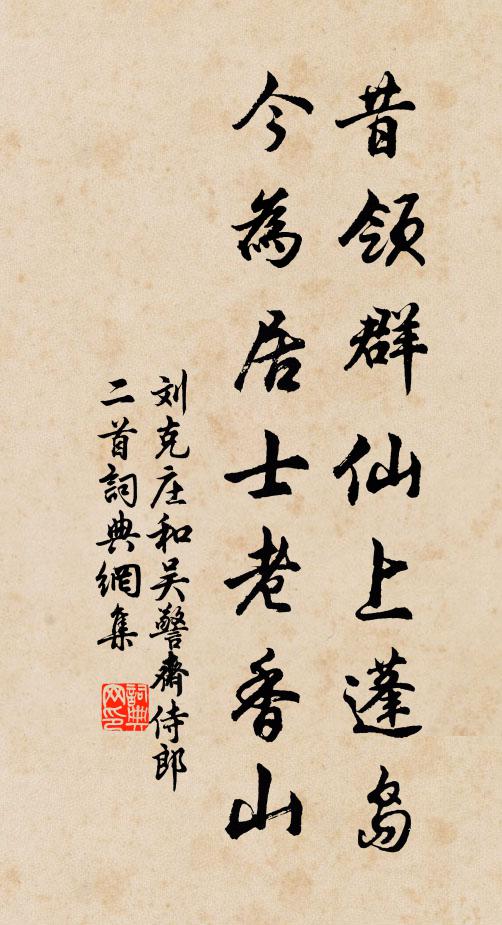 昔领群仙上蓬岛
今為居士老香山
刘克庄和吴警齋侍郎
二首詞典網集
詞典网印